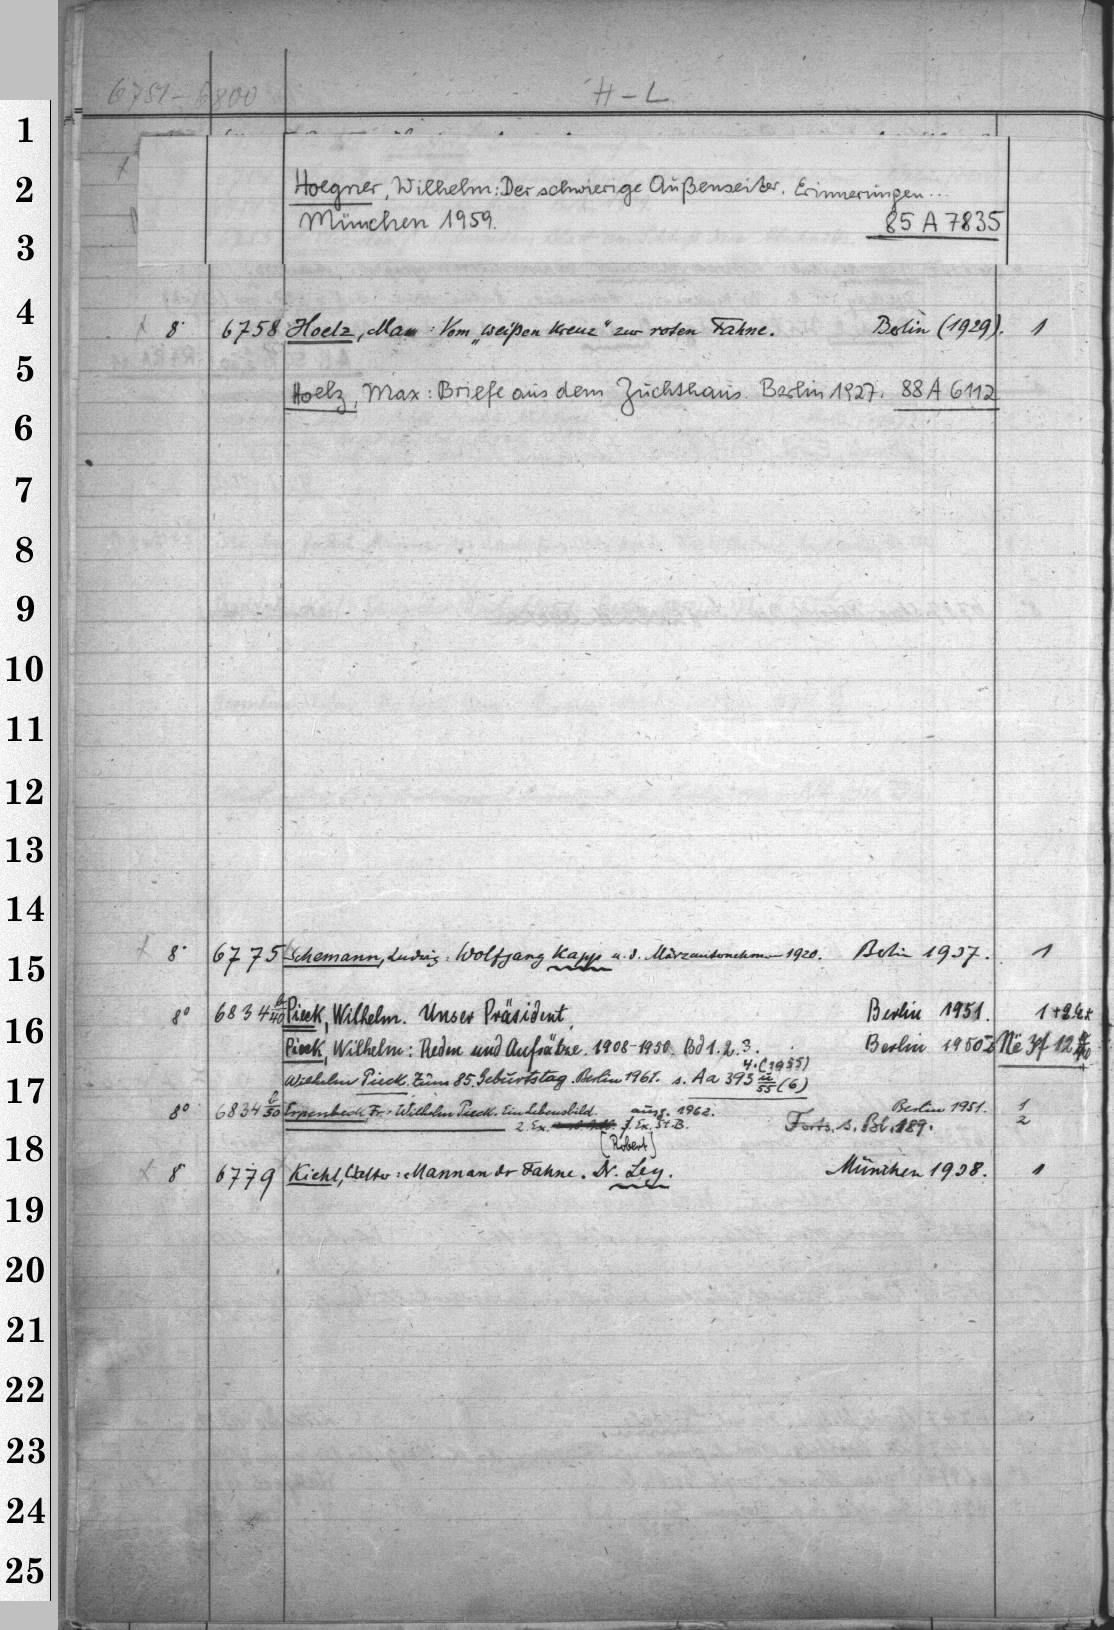 6751-6800 H-L
1
2
Hoegner, Wilhelm: Der schwierige Außenseiter. Erinnerungen...
München 1959. 85 A 7835
3
4
8° 6758 Hoelz, Max: Vom „weißen Kreuz" zur roten Fahne. Berlin (1929). 1
5
Hoelz, Max: Briefe aus dem Zuchthaus. Berlin 1927. 88 A 6112
6
7
8
9
10
11
12
13
14
15
8° 6775 Schemann, Ludwig: Wolfgang Kapp u. d. Märzunternehmen 1920. Berlin 1937. 1
16
8° 6834 Pieck, Wilhelm. Unser Präsident. Berlin 1951. 1
Pieck, Wilhelm: Reden und Aufsätze. 1908-1950. Bd 1. 2. 3. Berlin 1950
4. (1955)
17
Wilhelm Pieck. Zum 85. Geburtstag. Berlin 1961. s. Aa 393 (6)
8° 6834 Erpenbeck, Fr.: Wilhelm Pieck. Ein Lebensbild. Berlin 1951. 1
2. Ex. Forts. s. Bl. 189. 2
18
[Robert]
8° 6779 Kiehl, Walter: Mann an der Fahne. Dr. Ley. München 1938. 1
19
20
21
22
23
24
25